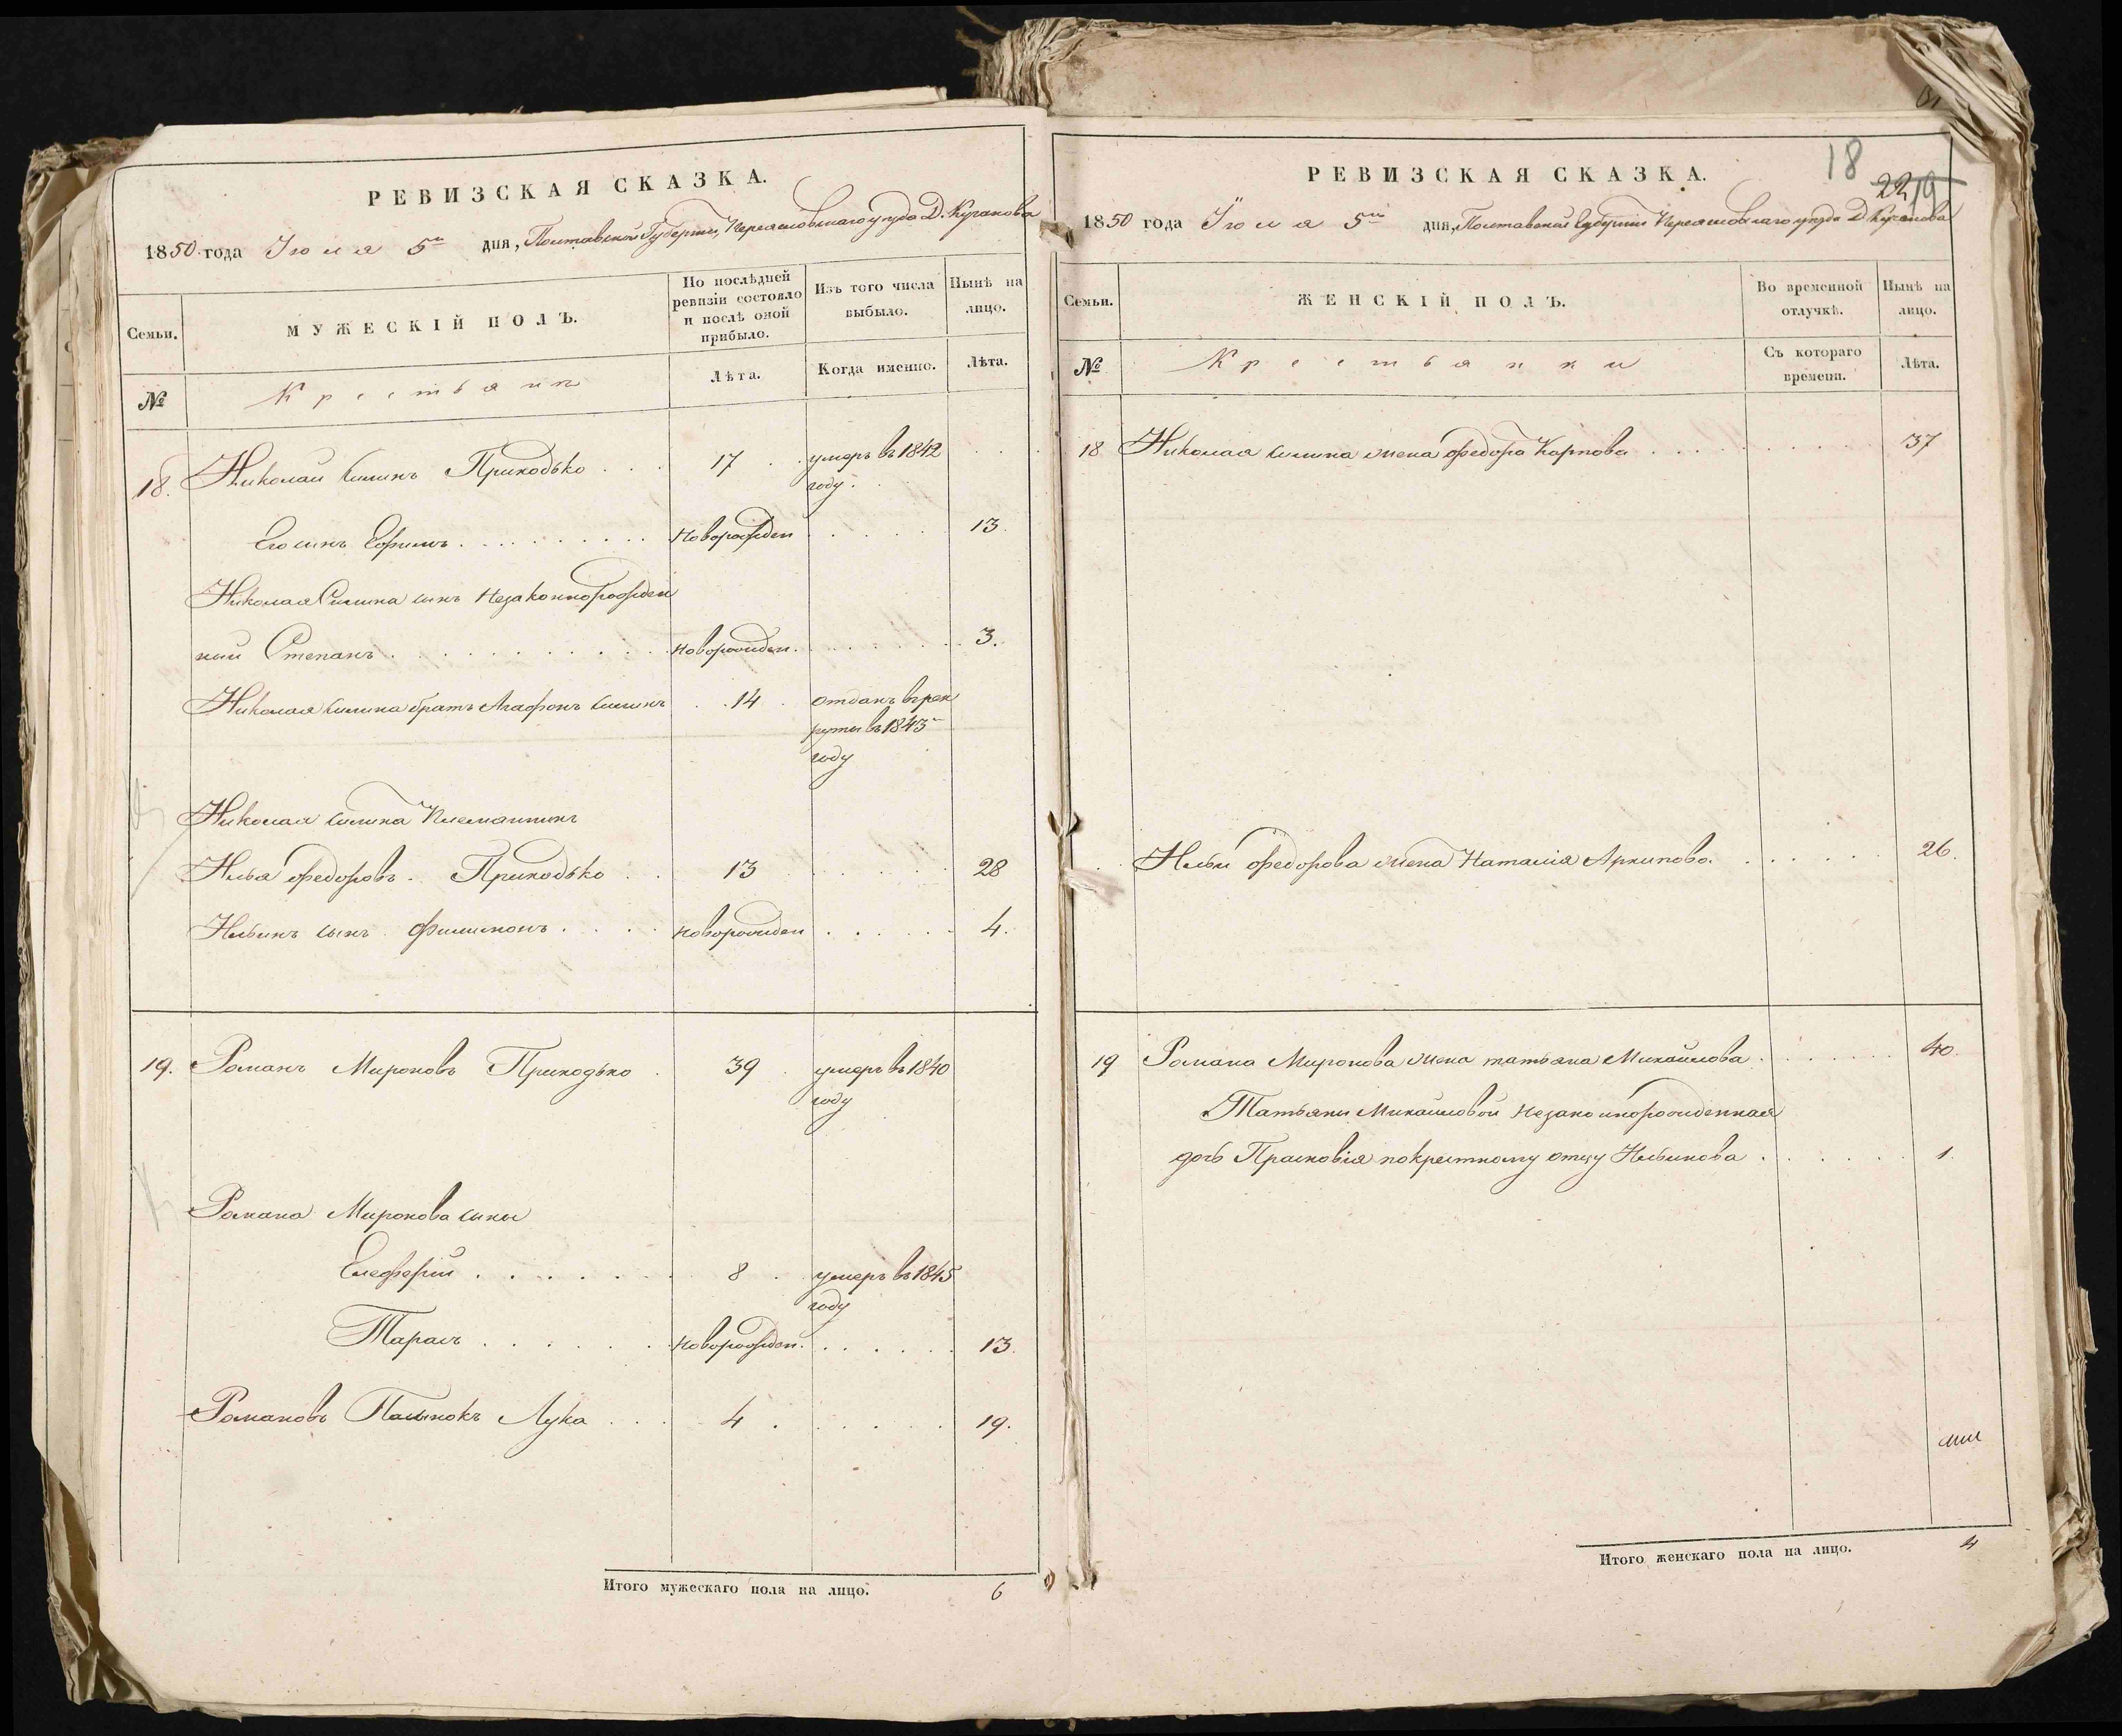 РЕВИЗСКАЯ СКАЗКА.
1850 года Іюля 5го дня, Полтавской Губерніи, Переяславскаго уезда Д. Куганова
Семьи.
МУЖЕСКІЙ ПОЛЪ.
По послѣдней ревизіи состояло и послѣ оной прибыло.
Изъ того числа выбыло.
Нынѣ на лицо.
№
Крестьянъ
Лѣта.
Когда именно.
Лѣта.
18. Николай Силинъ Приходько 17 умеръ въ 1842
году
Его сынъ Ефимъ новорожден 13.
Николая Силина сынъ Незаконнорожден
ный Степанъ новорожден. 3.
Николая Силина братъ Агафонъ Силинъ 14 отданъ въ рек
руты въ 1843
году
Николая Силина Племянникъ
Илья Федоровъ Приходько 13 28
Ильинъ сынъ Филимонъ новорожден 4.
19. Романъ Мироновъ Приходько 39 умеръ въ 1840
году
Романа Миронова сыны
Елеферій 8 умеръ въ 1845
году
Тарасъ новорожден. 13.
Романовъ Пасынокъ Лука 4 19.
Итого мужескаго пола на лицо. 6
18
22
19
РЕВИЗСКАЯ СКАЗКА.
1850 года Іюля 5го дня, Полтавской Губерніи Переяславскаго уезда Д Куганова
Семьи.
ЖЕНСКІЙ ПОЛЪ.
Во временной отлучкѣ.
Нынѣ на лицо.
№
Крестьянки
Съ котораго времени.
Лѣта.
18 Николая Силина жена Федора Карпова 37
Ильи Федорова жена Наталія Архипова. 26.
19 Романа Миронова жена татьяна Михайлова 40.
Татьяны Михайловой Незаконнорожденная
дочь Прасковія по крестному отцу Ильинова 1.
Итого женскаго пола на лицо. 4